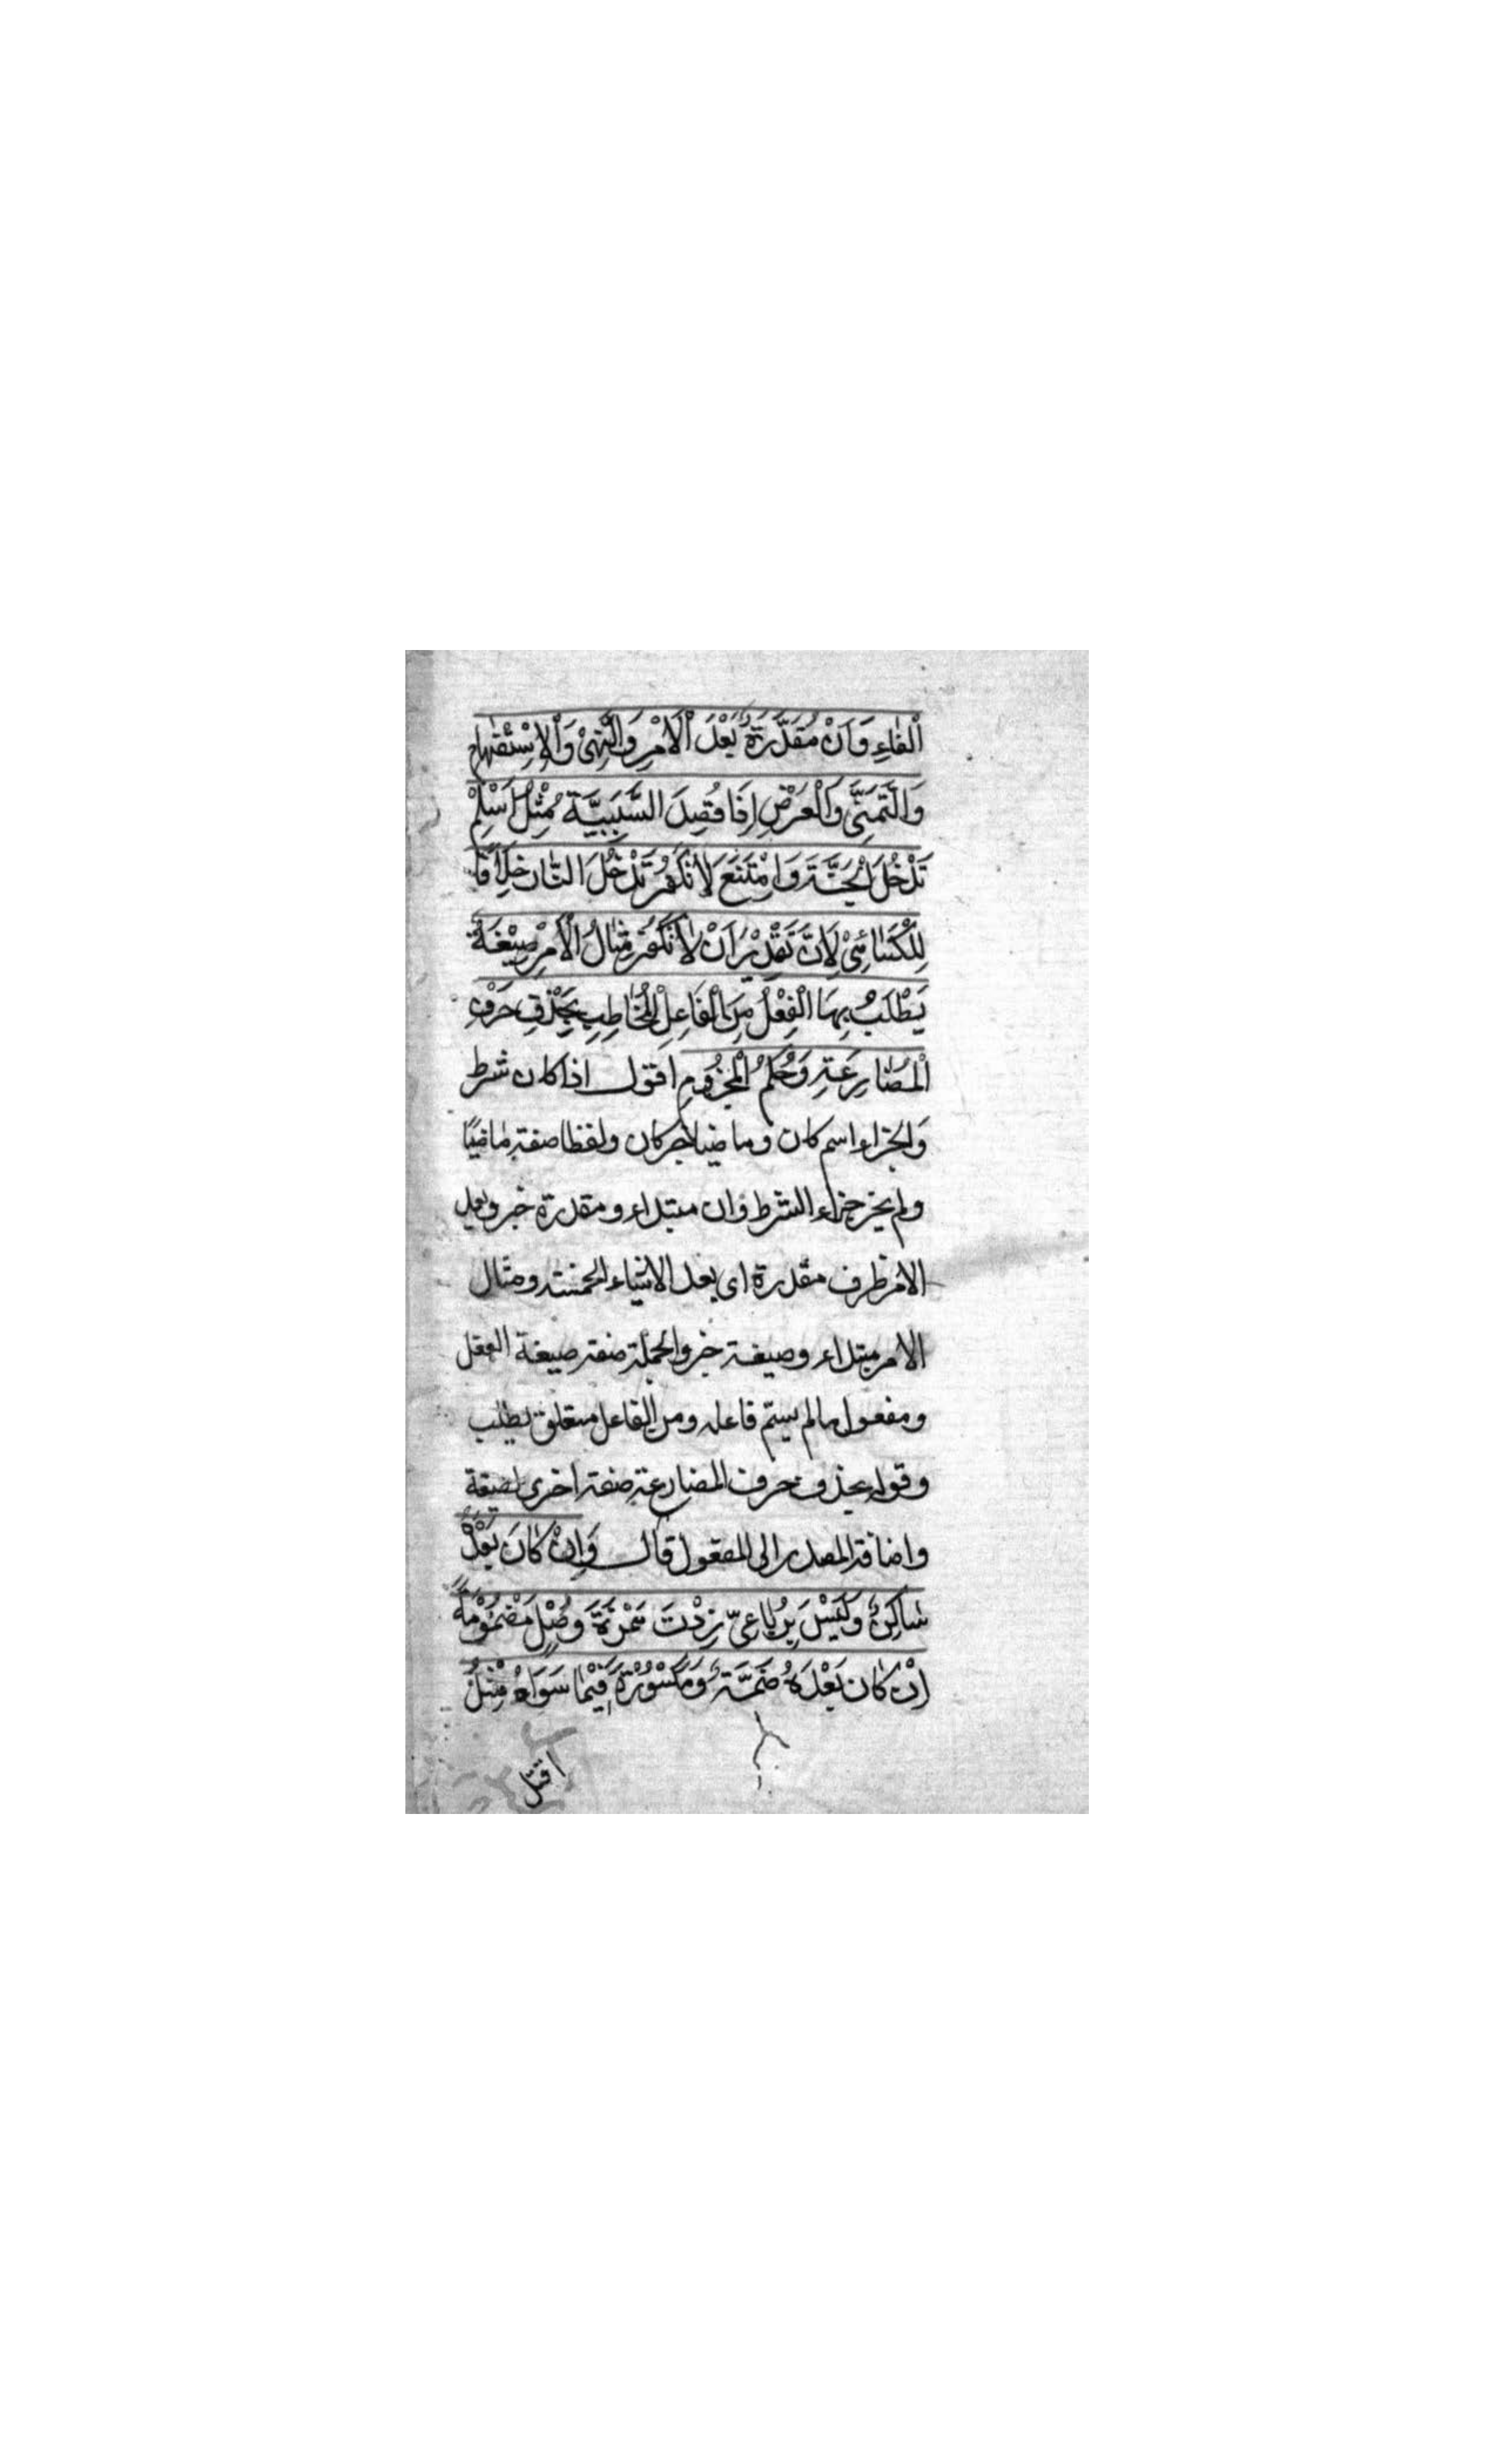 اَلْفَاءِ وَاَنْ مُقَدَّرَةٌ بَعْدَ اْلاَمْرِ وَالنَّهْىِ وَاْلاِسْتِفْهَامِ
وَالتَّمَنِّى وَالْعَرْضِ اِذَا قُصِدَ السَّبَبِيَّة مِثْلُ اَسْلِمْ
تَدْخُلِ الْجَنَّةَ وَامْتَنَعَ لاَ تَكْفُرْ تَدْخُلِ النَّار خِلاَفًا
لِلْكَسَائِىْ لِاَنَّ تَقْدِيْرَ اَنْ لاَ تَكْفُرْ مِثَالُ اْلاَمْرِ صِيْغَةٌ
يُطْلَبُ بِهَا الْفِعْلُ مِنَ الْفَاعِلِ الْمُخَاطِبِ بِحَذْفِ حَرْفِ
الْمُضَارِعَةِ وَحُكْمُ الْمَجْزُوْمِ اقول اذا كان شرط
وَالجزاء اسم كان وماضيا خبر كان ولفظا صفة مَاضيًا
ولم يجز جزاء الشرط وان مبتداء ومقدرة خبر وبعد
الامر ظرف مقدرة اى بعد الاشياء الخمسة ومثال
الامر مبتداء وصيغة خبر والجملة صفة صيغة الفعل
ومفعول مالم يسمّ فاعله ومن الفاعل متعلق يطلب
وقوله بحذف حرف المضارعة صفة اخرى لصيغة
واضافة المصدر الى المفعول قال وَاِنْ كَانَ بَعْدَهُ
سَاكِنٌ وَلَيْسَ بِرُبَاعِىّ زِدْتَ هَمْزَةَ وَصْلٍ مَضْمُوْمَةً
اِنْ كَان بَعْدَهُ ضَمَّةٌ وَمَكْسُوْرَةً فِيْمَا سَوَاهُ مِثْلُ
اقتل